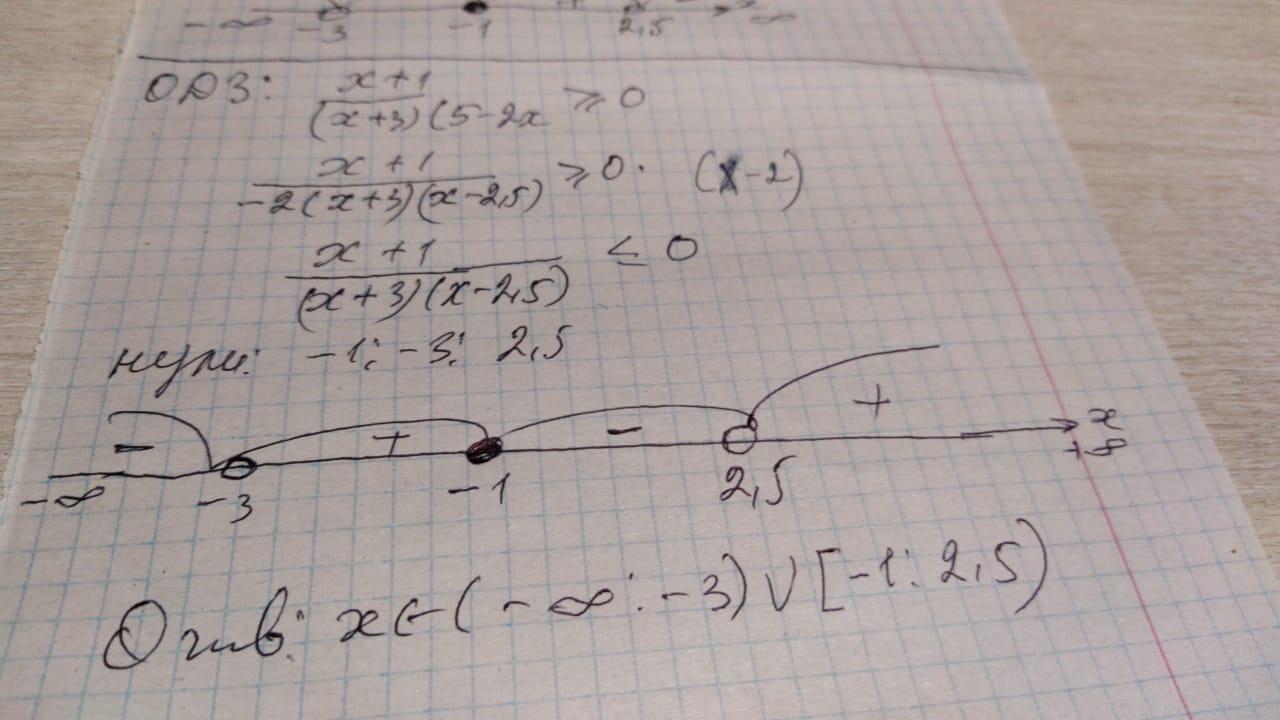 -∞ -3 -1 + 2,5 - ∞
ОДЗ: x+1 / (x+3)(5-2x ⩾ 0
x+1 / -2(x+3)(x-2,5) ⩾ 0. (x-2)
x+1 / (x+3)(x-2,5) ≤ 0
нули: -1; -3; 2,5
- + - +
-∞ -3 -1 2,5 x
Отв: x∈(-∞; -3)∪[-1; 2,5)